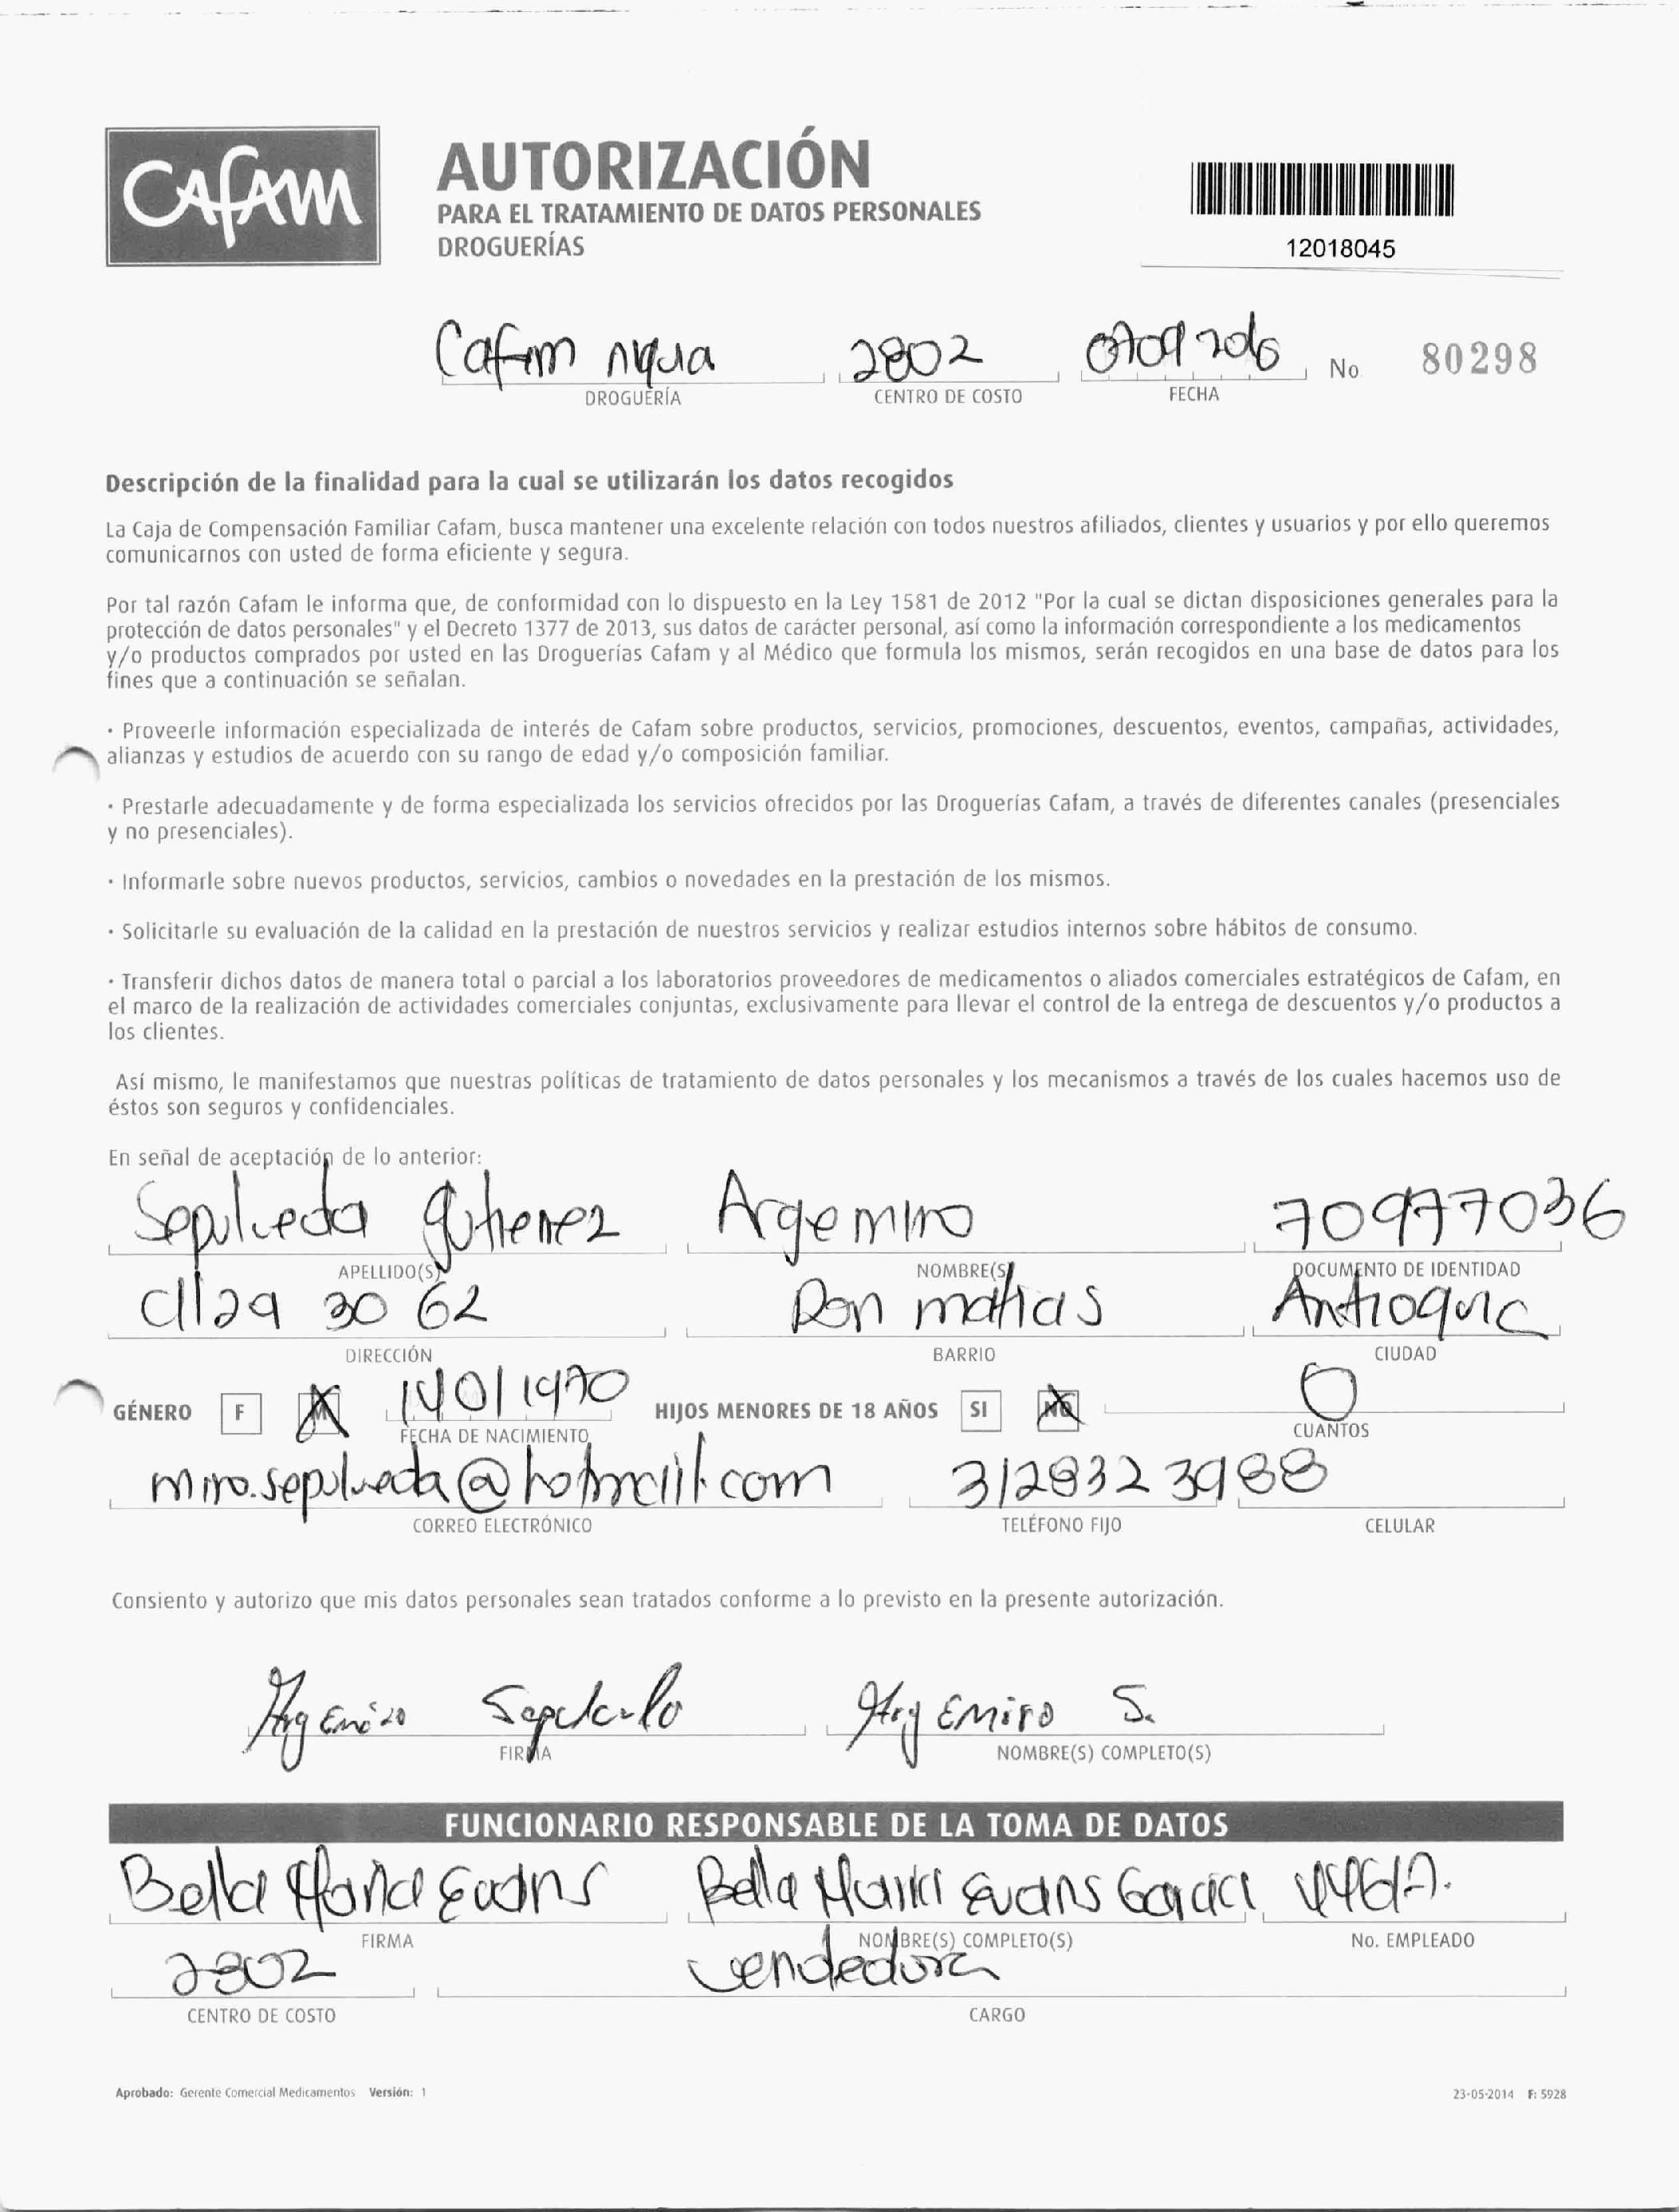 CAFAM
AUTORIZACIÓN
PARA EL TRATAMIENTO DE DATOS PERSONALES
DROGUERÍAS
12018045
Cafam niquia 2802 07092016 No. 80298
DROGUERÍA CENTRO DE COSTO FECHA
Descripción de la finalidad para la cual se utilizarán los datos recogidos
La Caja de Compensación Familiar Cafam, busca mantener una excelente relación con todos nuestros afiliados, clientes y usuarios y por ello queremos
comunicarnos con usted de forma eficiente y segura.
Por tal razón Cafam le informa que, de conformidad con lo dispuesto en la Ley 1581 de 2012 "Por la cual se dictan disposiciones generales para la
protección de datos personales" y el Decreto 1377 de 2013, sus datos de carácter personal, así como la información correspondiente a los medicamentos
y/o productos comprados por usted en las Droguerías Cafam y al Médico que formula los mismos, serán recogidos en una base de datos para los
fines que a continuación se señalan.
· Proveerle información especializada de interés de Cafam sobre productos, servicios, promociones, descuentos, eventos, campañas, actividades,
alianzas y estudios de acuerdo con su rango de edad y/o composición familiar.
· Prestarle adecuadamente y de forma especializada los servicios ofrecidos por las Droguerías Cafam, a través de diferentes canales (presenciales
y no presenciales).
· Informarle sobre nuevos productos, servicios, cambios o novedades en la prestación de los mismos.
· Solicitarle su evaluación de la calidad en la prestación de nuestros servicios y realizar estudios internos sobre hábitos de consumo.
· Transferir dichos datos de manera total o parcial a los laboratorios proveedores de medicamentos o aliados comerciales estratégicos de Cafam, en
el marco de la realización de actividades comerciales conjuntas, exclusivamente para llevar el control de la entrega de descuentos y/o productos a
los clientes.
Así mismo, le manifestamos que nuestras políticas de tratamiento de datos personales y los mecanismos a través de los cuales hacemos uso de
éstos son seguros y confidenciales.
En señal de aceptación de lo anterior:
Sepulveda gutierrez Argemiro 70977036
APELLIDO(S) NOMBRE(S) DOCUMENTO DE IDENTIDAD
cll29 30 62 Don matias Antioquia
DIRECCIÓN BARRIO CIUDAD
GÉNERO F M 14011970 HIJOS MENORES DE 18 AÑOS SI NO 0
FECHA DE NACIMIENTO CUANTOS
miro.sepulveda@hotmail.com 3128323988
CORREO ELECTRÓNICO TELÉFONO FIJO CELULAR
Consiento y autorizo que mis datos personales sean tratados conforme a lo previsto en la presente autorización.
Argemiro Sepulveda Argemiro S.
FIRMA NOMBRE(S) COMPLETO(S)
FUNCIONARIO RESPONSABLE DE LA TOMA DE DATOS
Bella Maria Evans Bella Maria Evans Garcia
FIRMA NOMBRE(S) COMPLETO(S) No. EMPLEADO
2802 vendedora
CENTRO DE COSTO CARGO
Aprobado: Gerente Comercial Medicamentos Versión: 1 23-05-2014 F: 5928